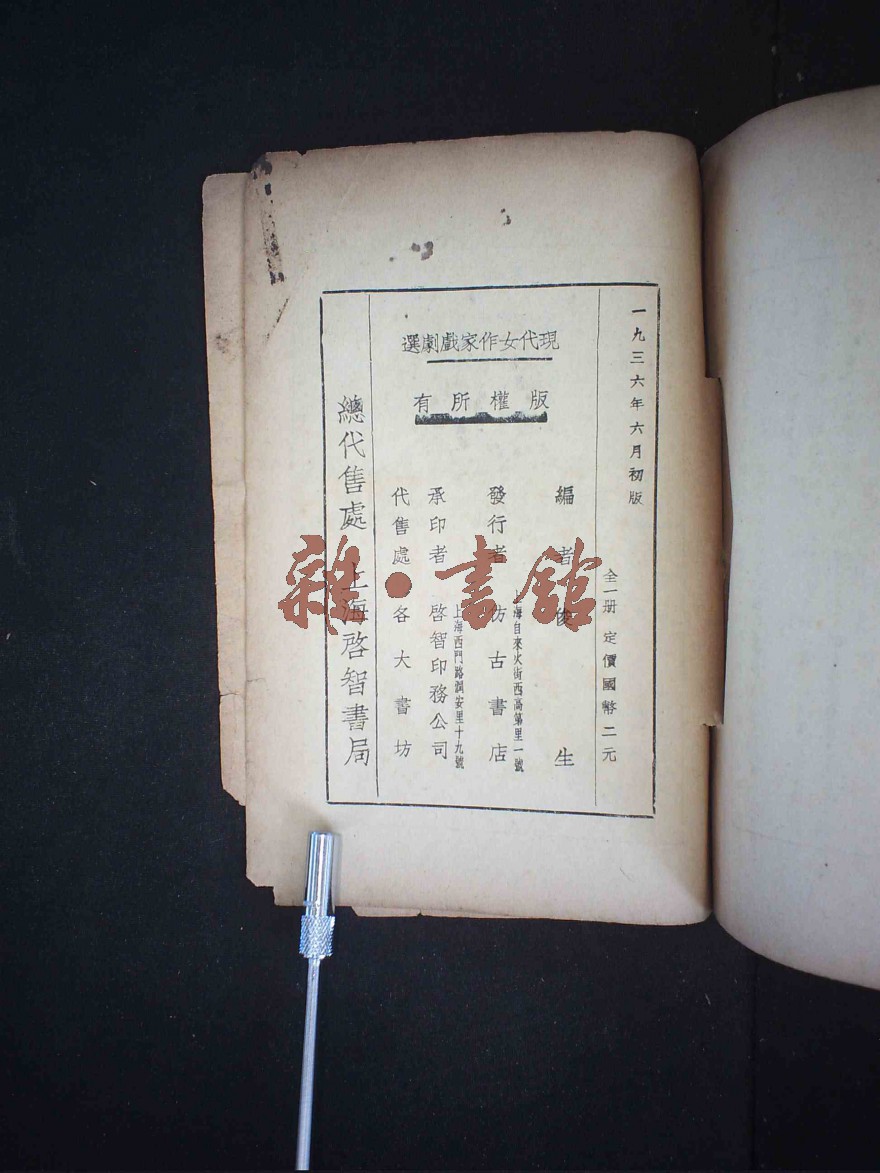 一九三六年六月初版
全一册 定價國幣二元
現代女作家戲劇選
版權所有
編者 俊生
發行者 仿古書店
上海自來火街西高第里一號
承印者 啓智印務公司
上海西門路潤安里十九號
代售處 各大書坊
總代售處 上海啓智書局
雜·書館